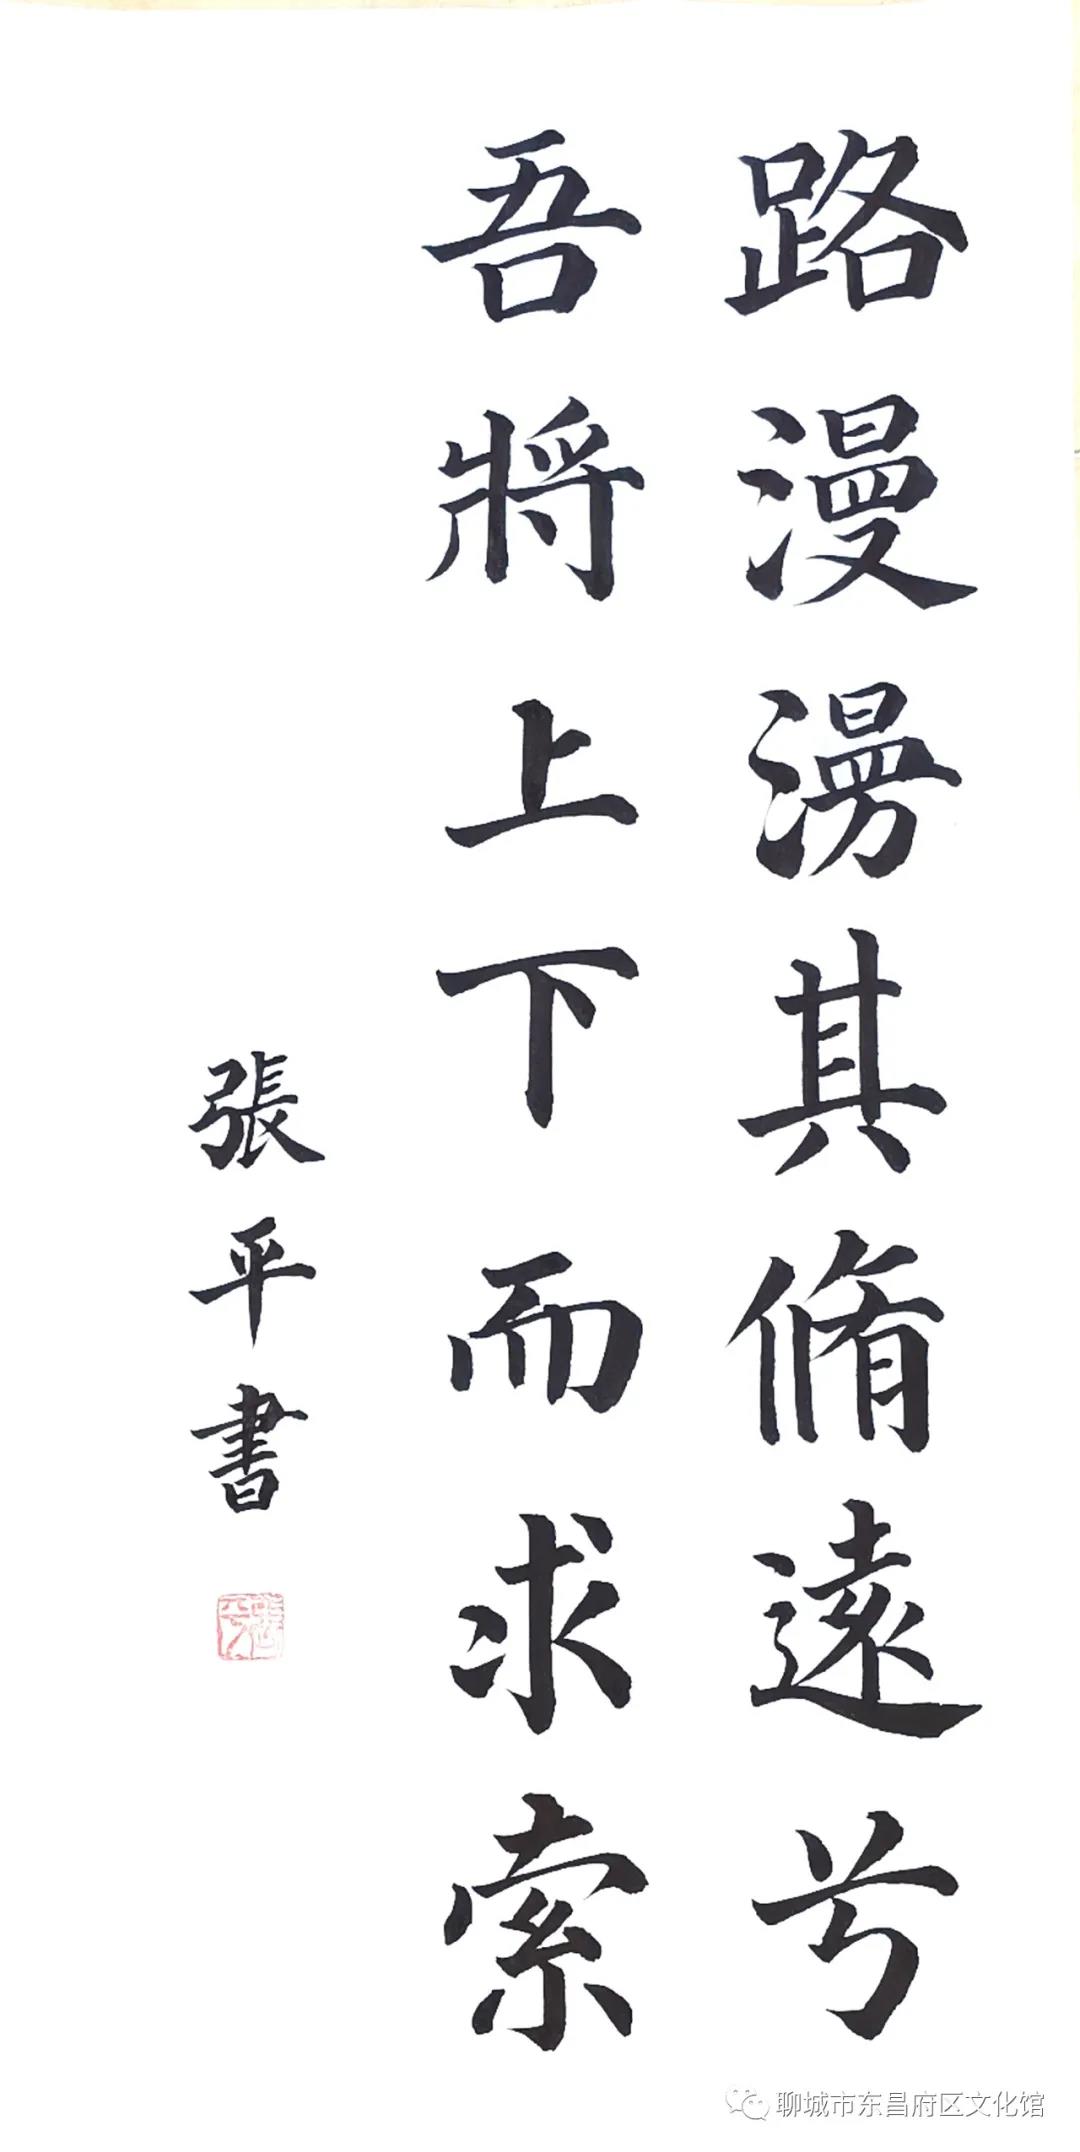 路漫漫其脩遠兮
吾將上下而求索
張平書
聊城市东昌府区文化馆